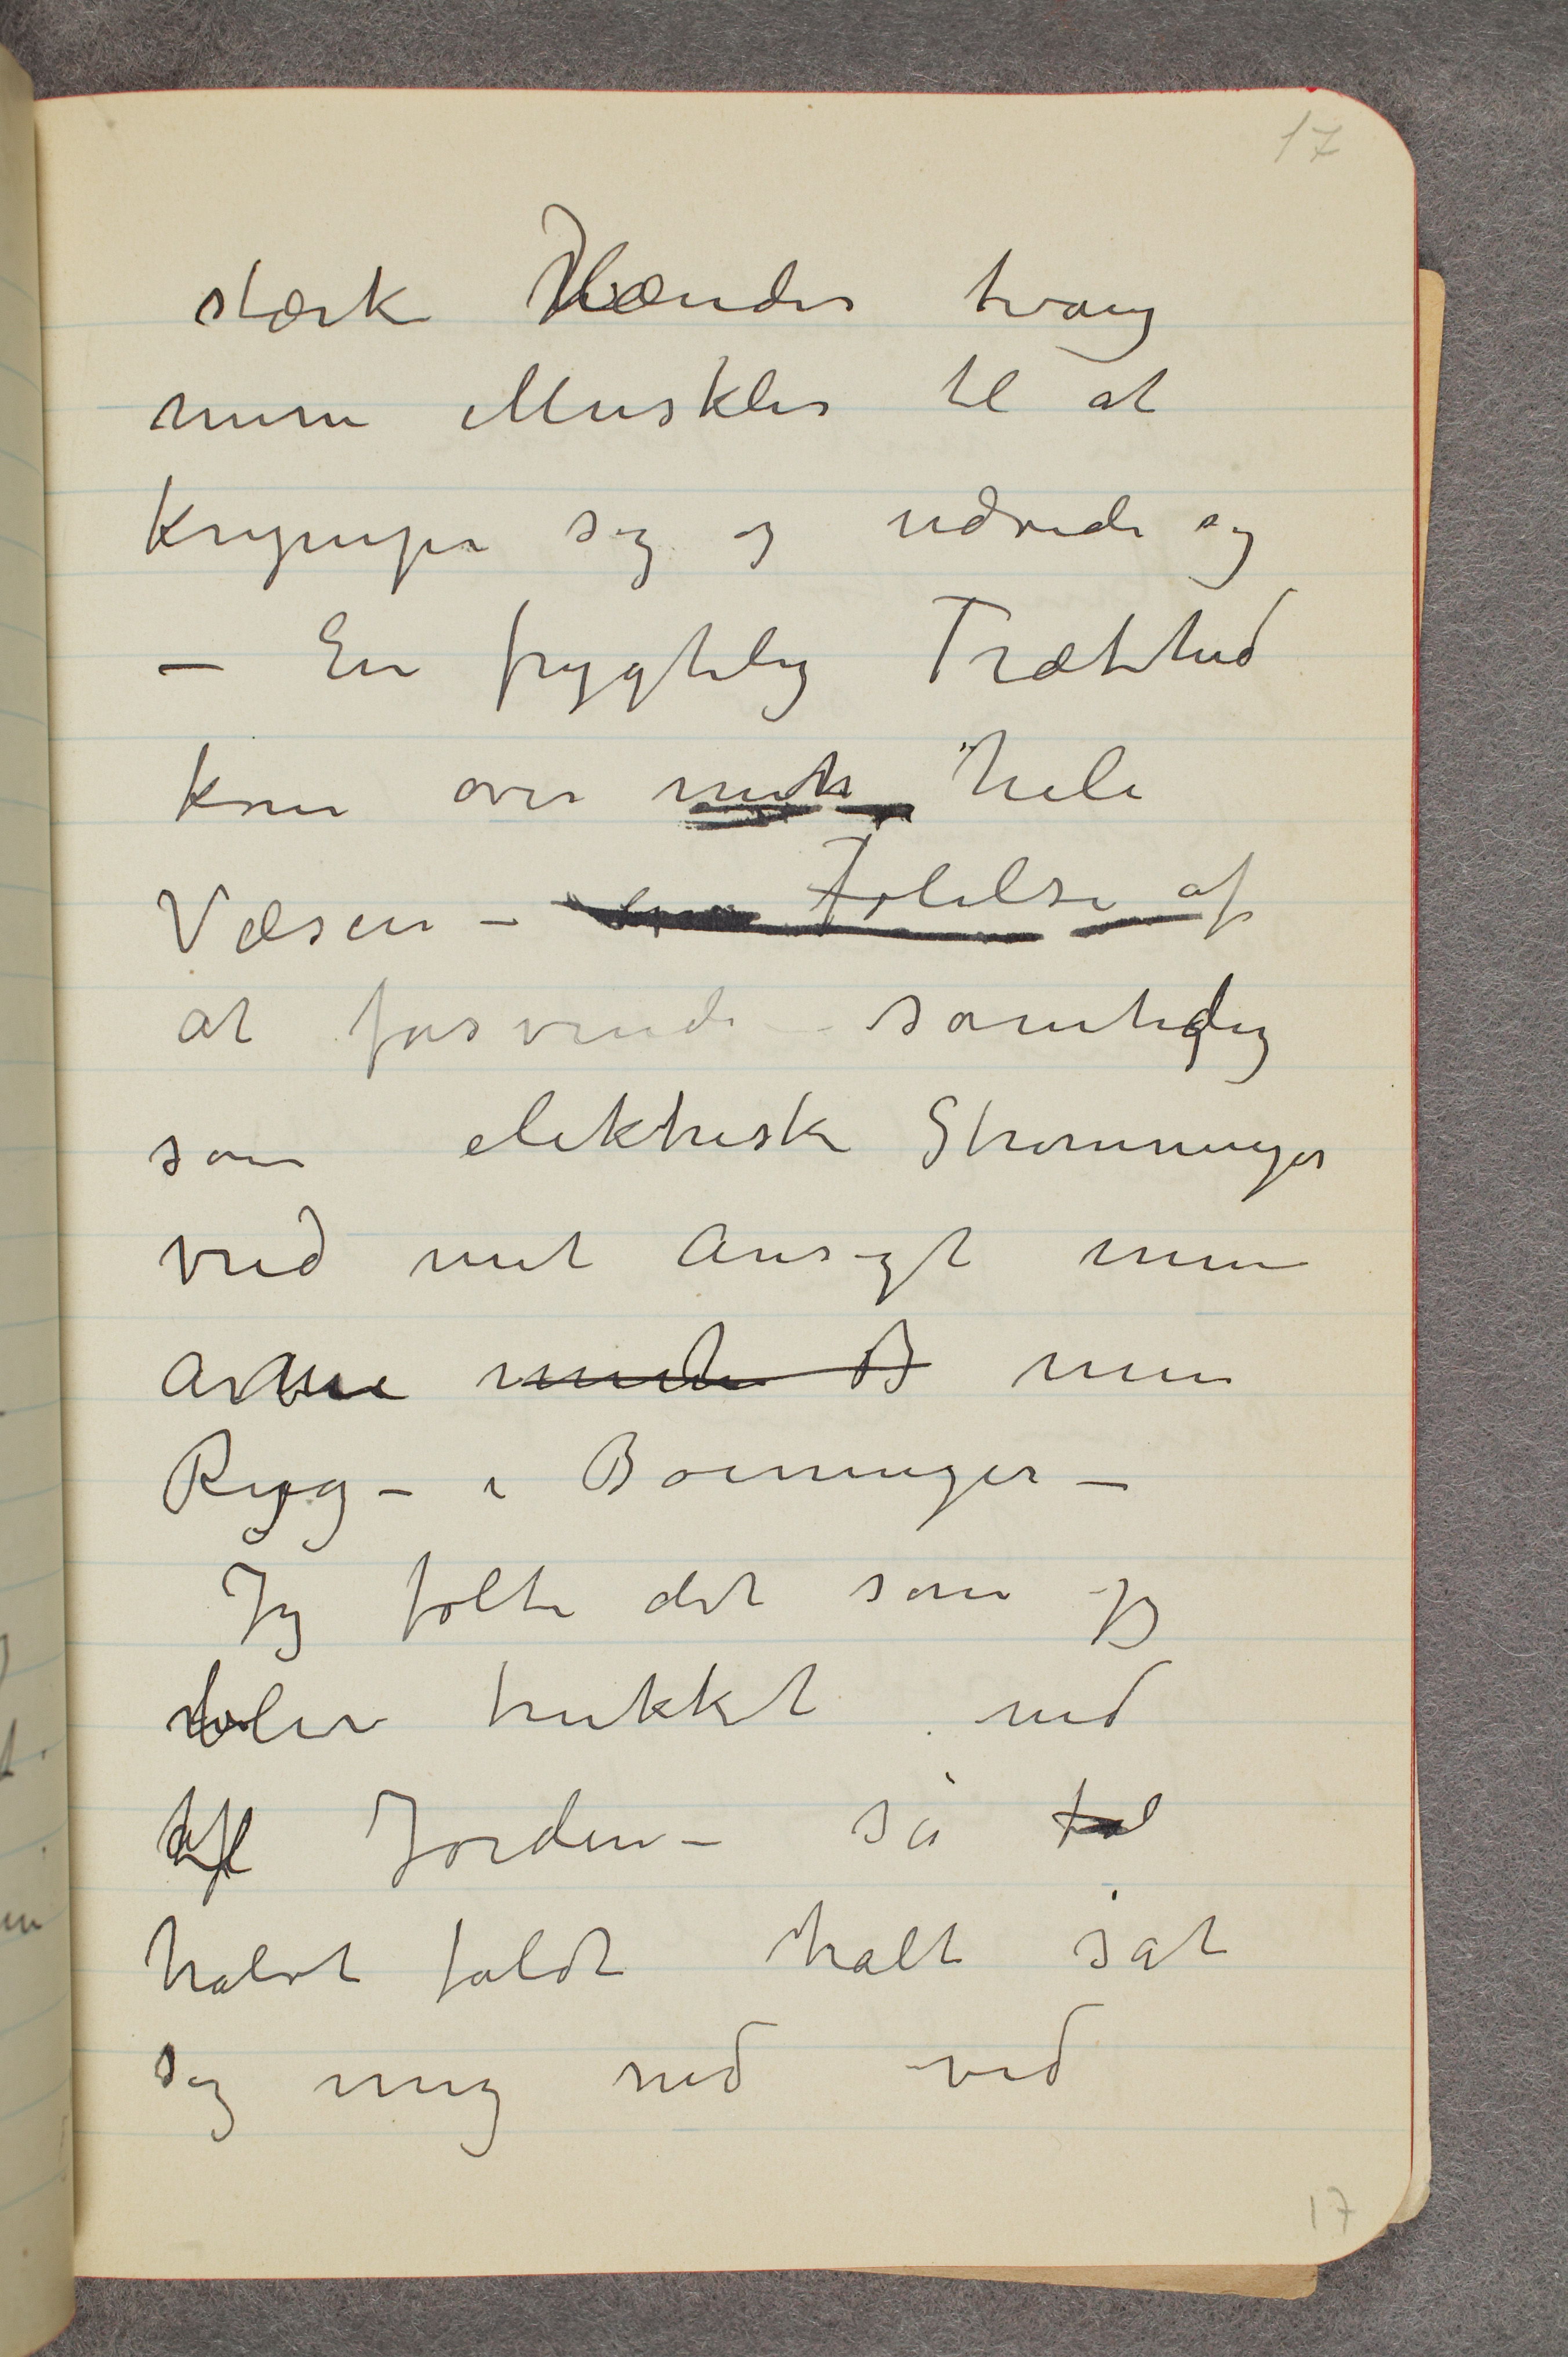 17
stærke Hænder tvang
mine Muskler til at
krympe sig og udvide sig
– En frygtelig Træthed
kom over mit hele
Væsen – en følelse af
at forsvinde – samtidig
som elektriske Strømninger
vred mit Ansigt mine
Arme B min
Ryg – i Bøininger –
Jeg følte det som jeg
blev trukket ned
af Jorden – så fal
halvt faldt halt sat
sig mig ned ved
17